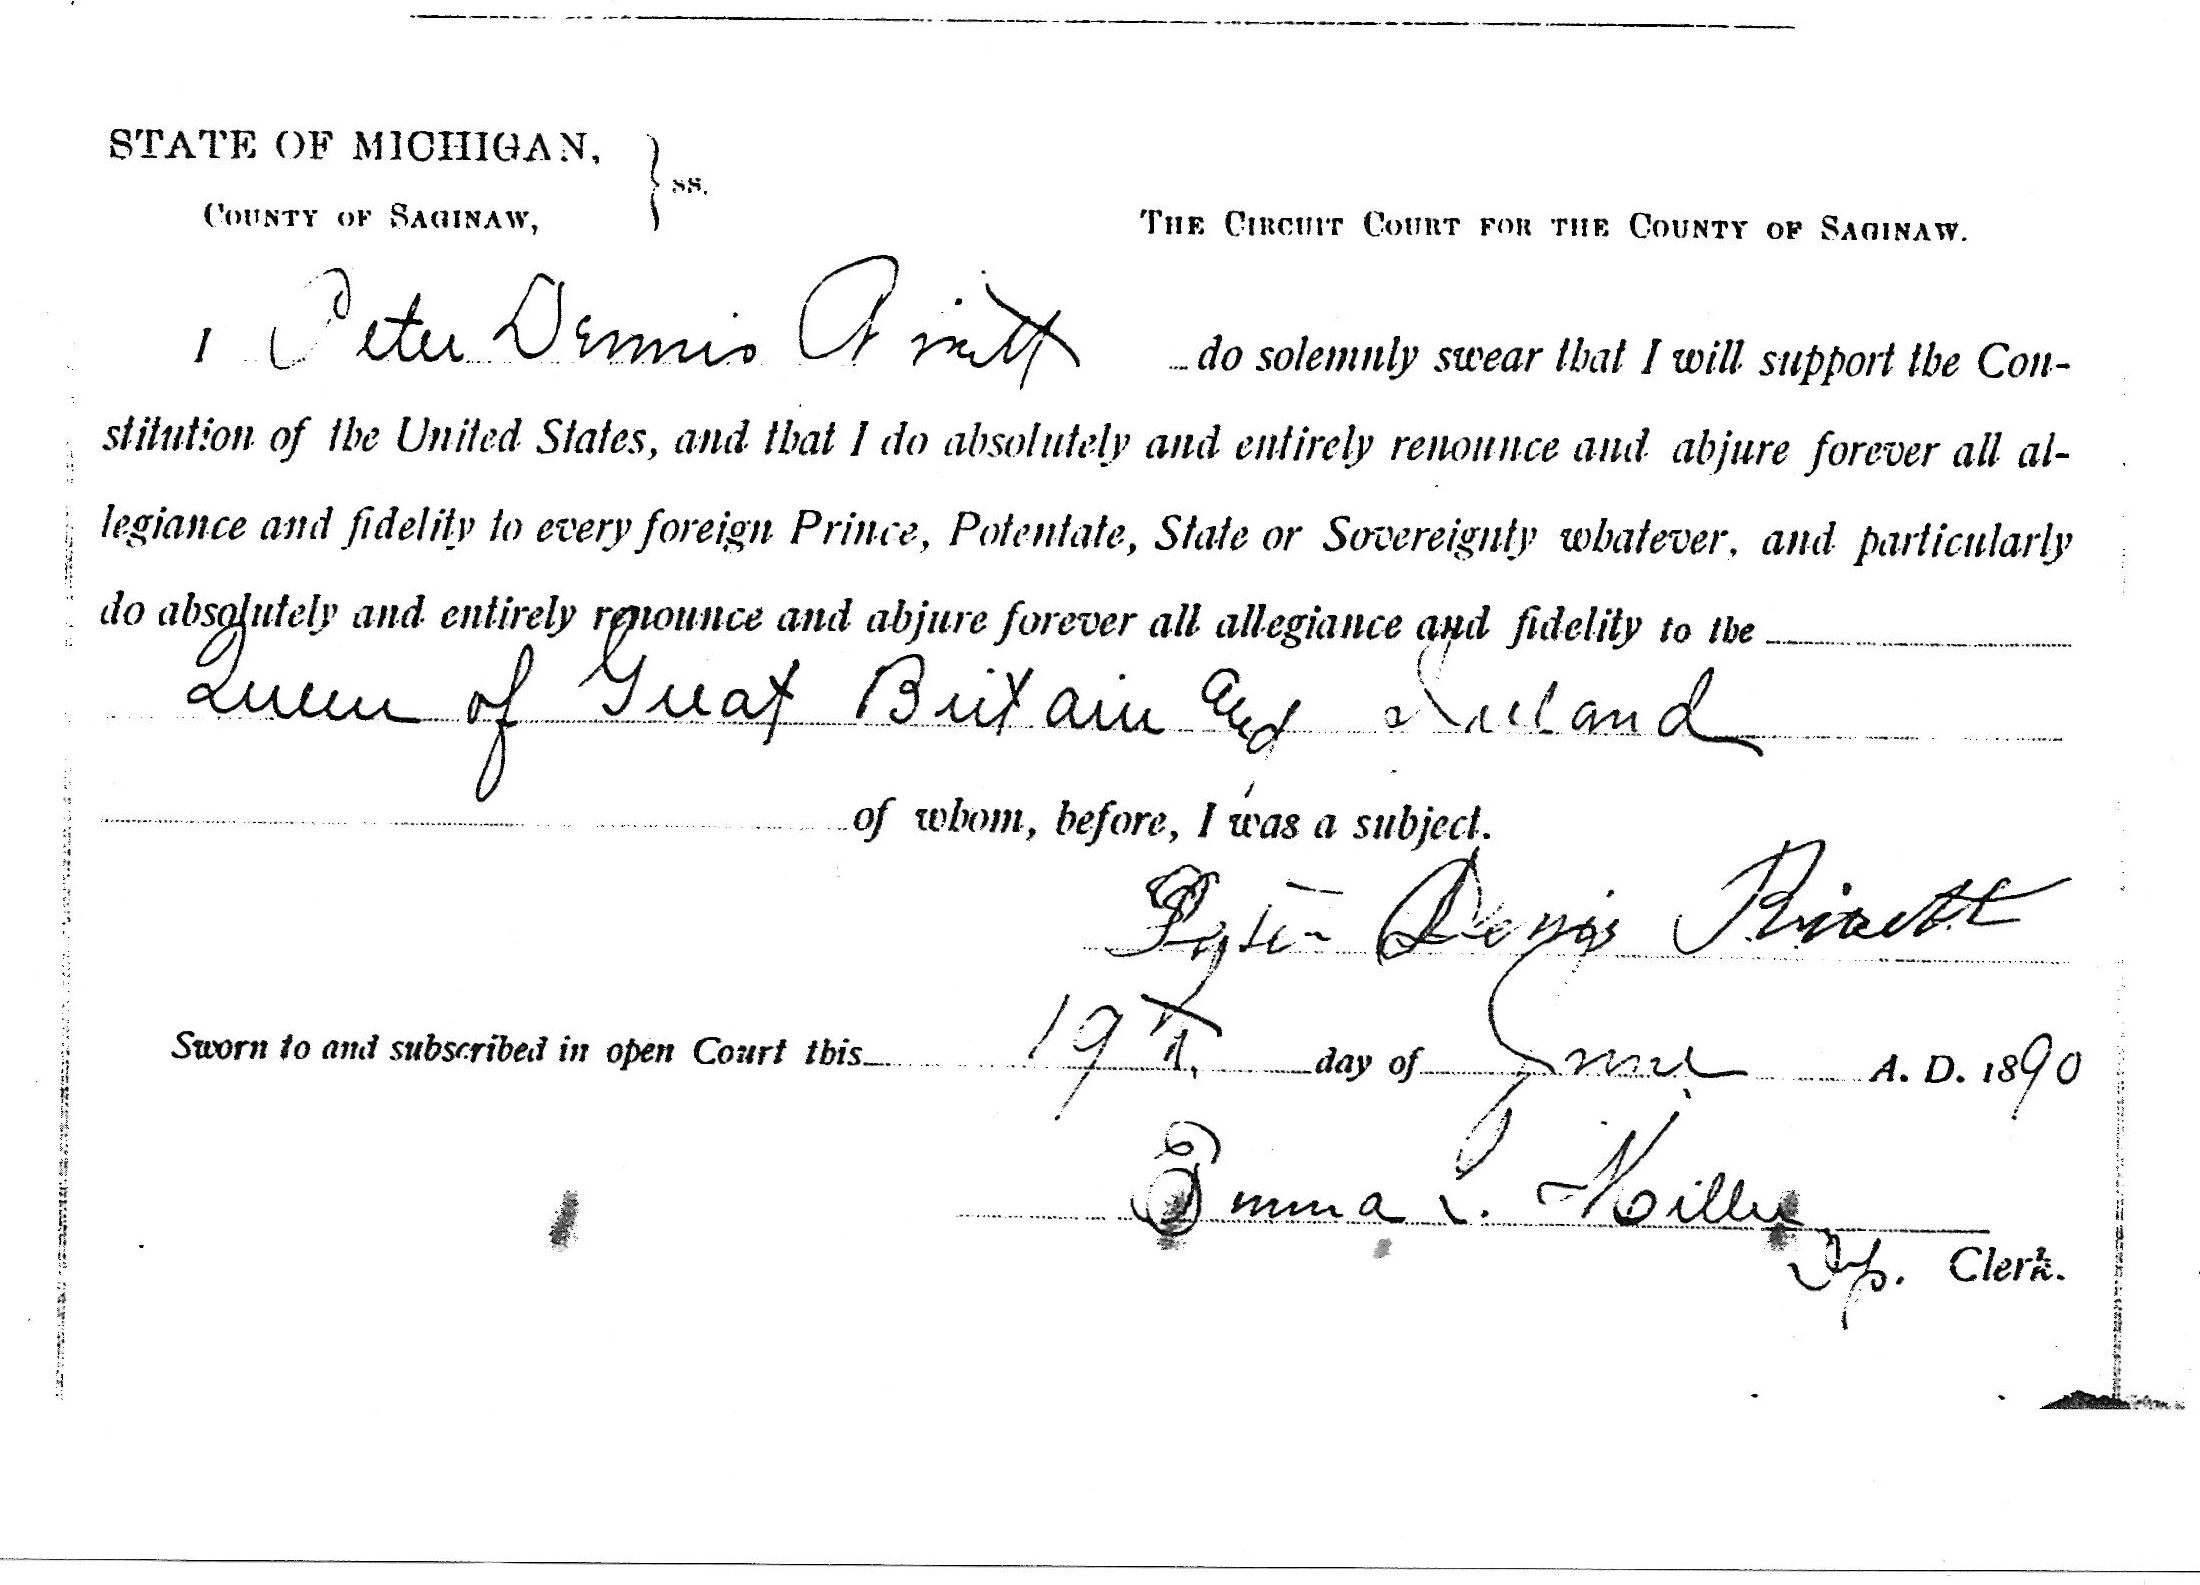 STATE OF MICHIGAN,
COUNTY OF SAGINAW, } ss.
THE CIRCUIT COURT FOR THE COUNTY OF SAGINAW.
I Peter Dennis do solemnly swear that I will support the Con-
stitution of the United States, and that I do absolutely and entirely renounce and abjure forever all al-
legiance and fidelity to every foreign Prince, Potentate, State or Sovereignty whatever, and particularly
do absolutely and entirely renounce and abjure forever all allegiance and fidelity to the
Queen of Great Britain and Ireland
of whom, before, I was a subject.
Peter Denis
Sworn to and subscribed in open Court this 19th day of June A. D. 1890
Emma L. Miller
Dep. Clerk.